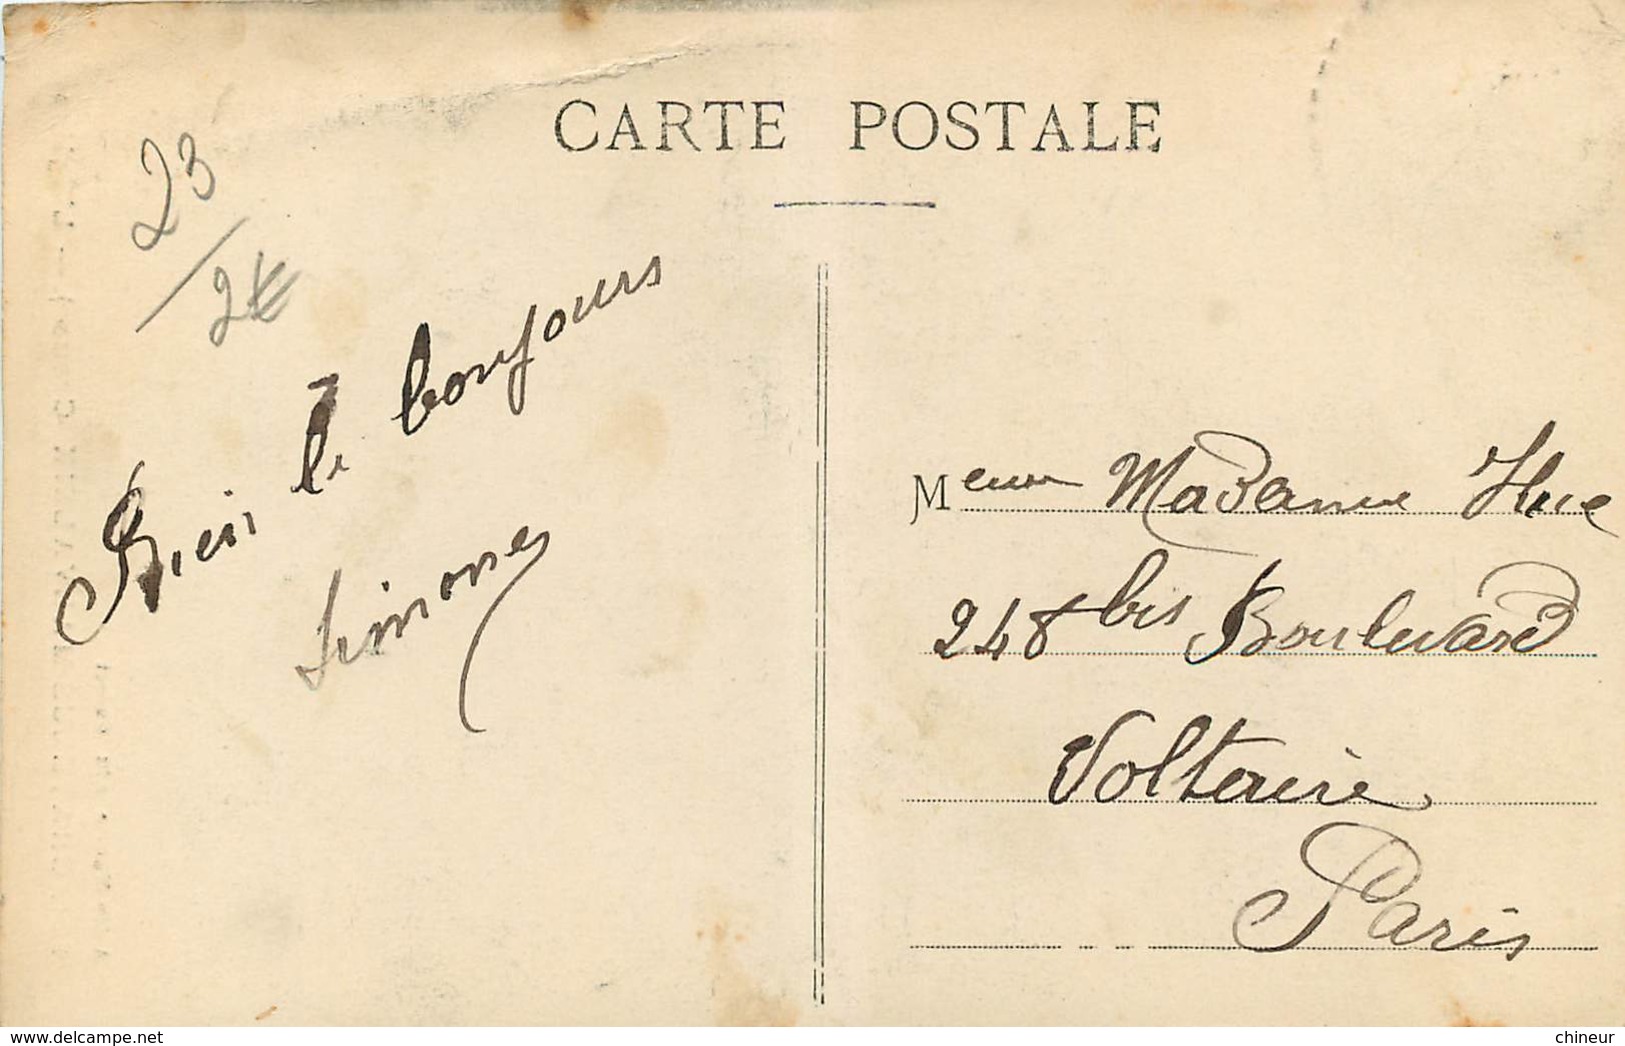 CARTE POSTALE
23
2€
Bien le bonjours
Simone
Meur Madame Hue
248 bis Boulevard
Voltaire
Paris
https://www.delcampe.net
chineur